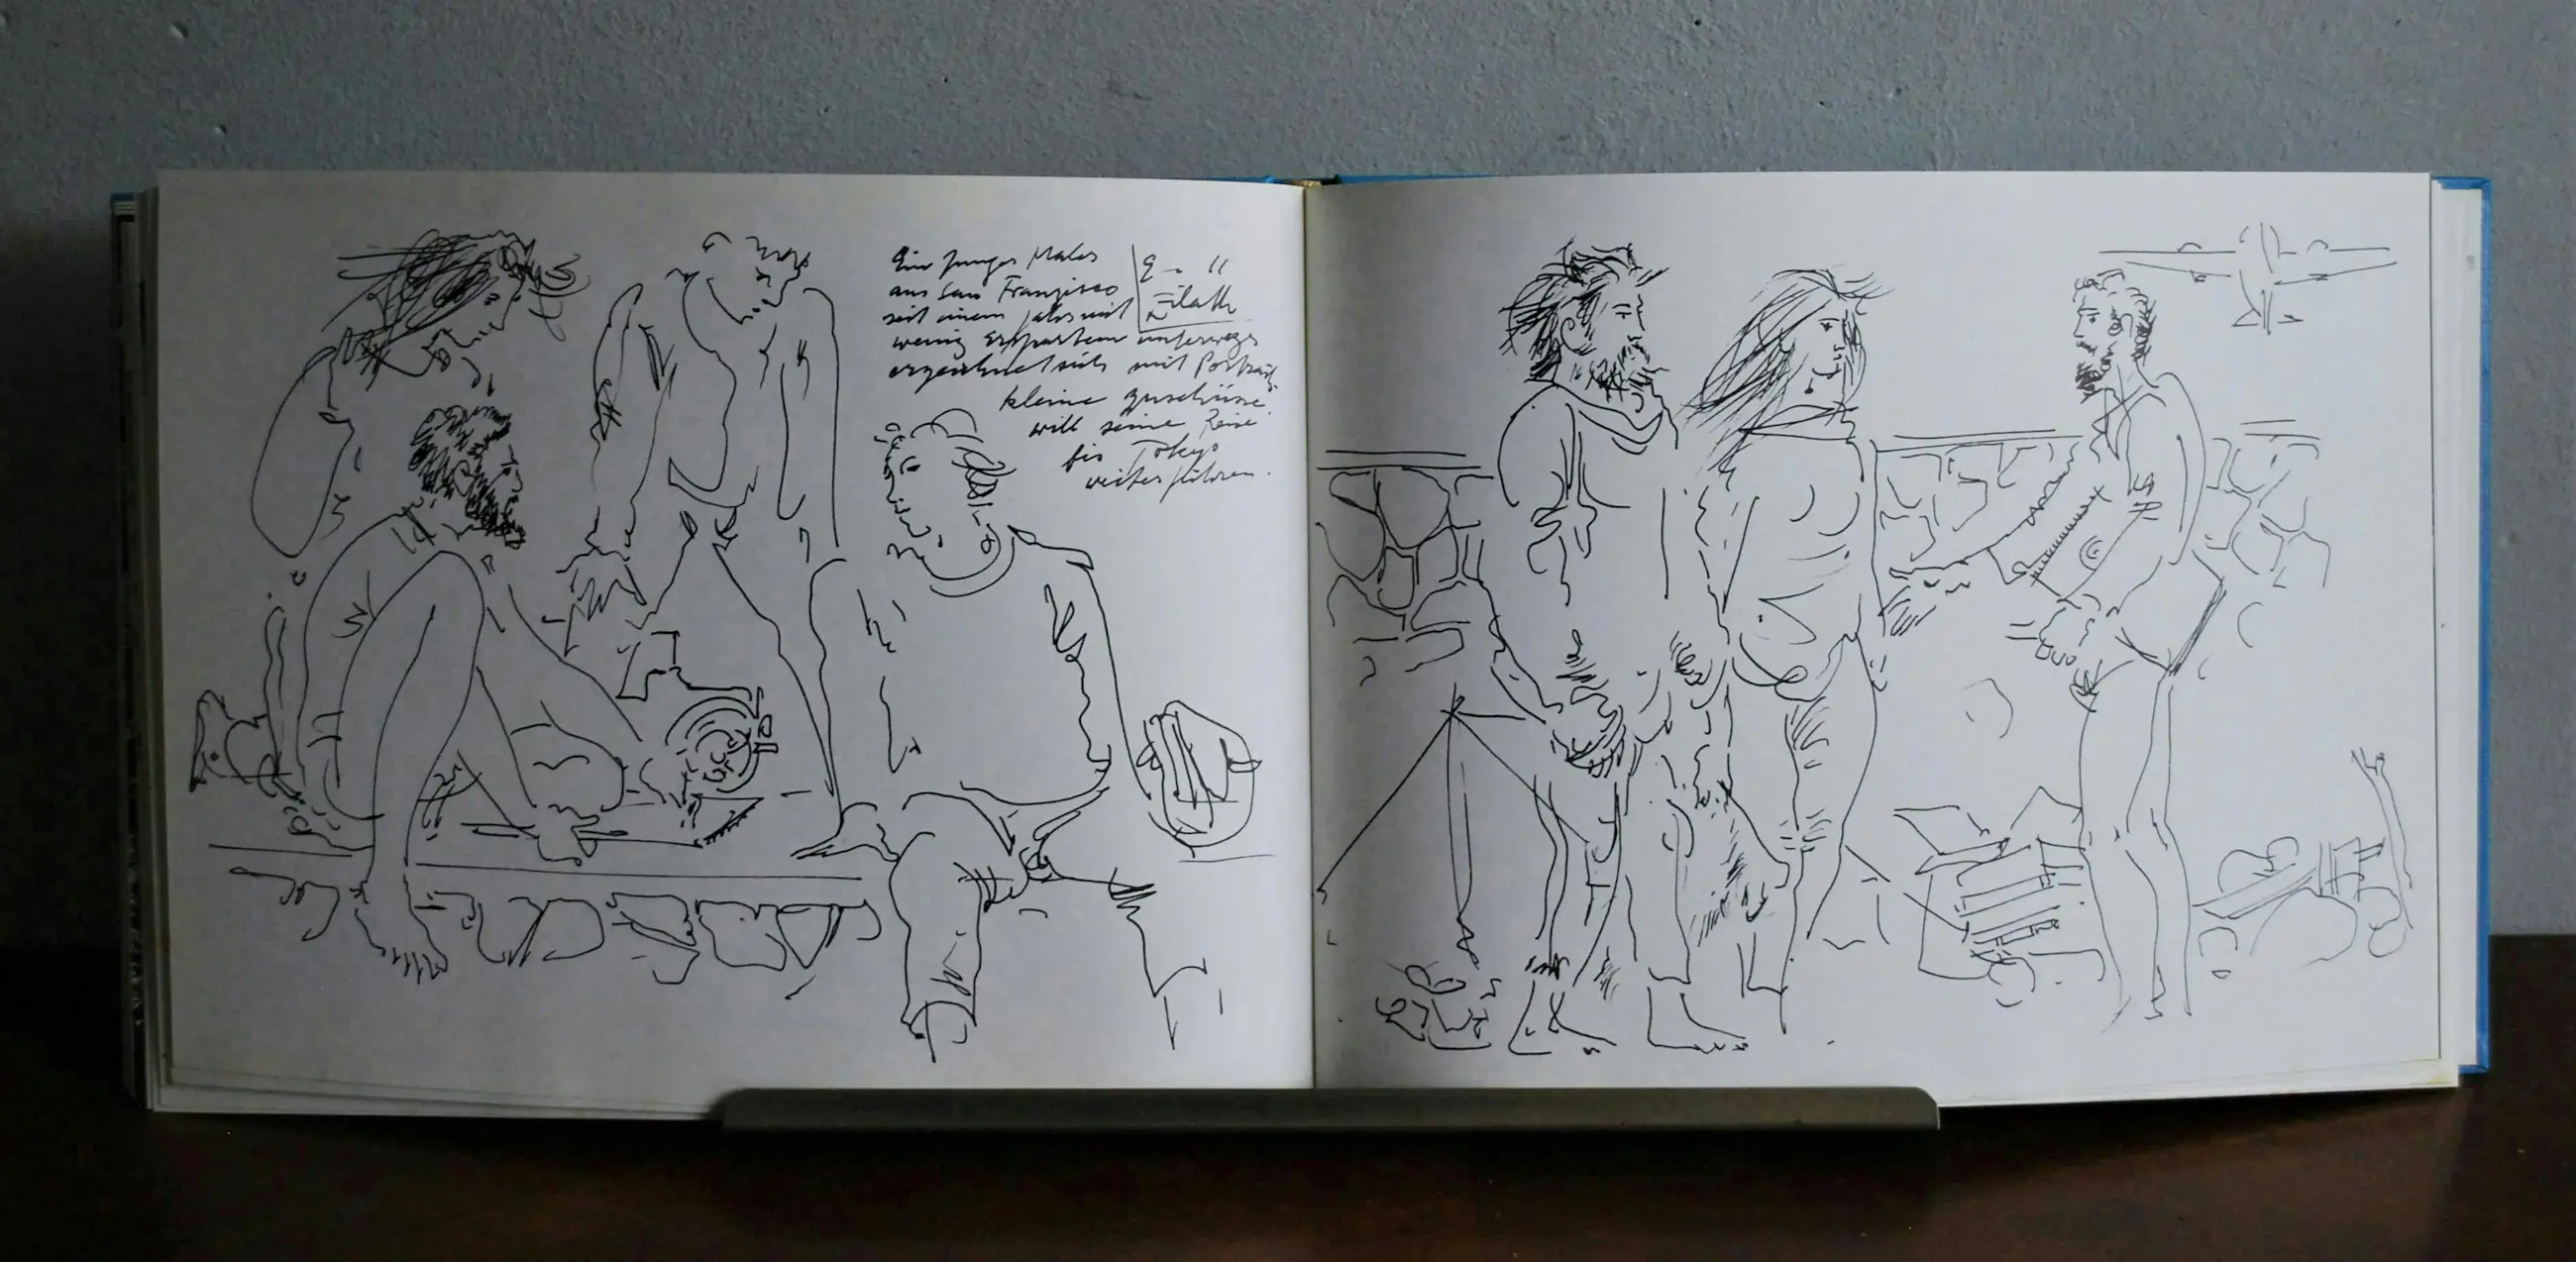 Ein junger Maler
aus San Franzisco
seit einem Jahr mit
wenig Erspartem unterwegs
erzeichnet sich mit Portrait
kleine Zuschüsse
will seine Reise
bis Tokyo
weiterführen.
Eilath